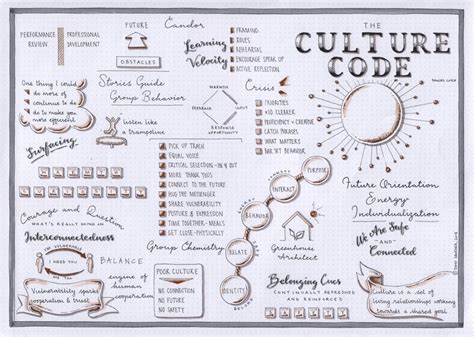 PERFORMANCE REVIEW
PROFESSIONAL DEVELOPMENT
FUTURE
OBSTACLES
Candor
Learning
Velocity
FRAMING
ROLES
REHEARSAL
ENCOURAGE SPEAK UP
ACTIVE REFLECTION
THE
CULTURE
CODE
One thing I could
do more of
continue to do
do to make you
more efficient
Stories Guide
Group Behavior
listen like
a trampoline
WARMTH
FEEDBACK
RESPONSE
OPPORTUNITY
Crisis
PRIORITIES
KID CLEARER
PROFICIENCY - CREATIVE
CATCH PHRASES
WHAT MATTERS
BAR SET BEHAVIOR
Surfacing
PICK UP TRASH
EQUAL VOICE
CRITICAL SELECTION - IN & OUT
MORE THANK YOU'S
CONNECT TO THE FUTURE
HUG THE MESSENGER
SHARE VULNERABILITY
POSTURE & EXPRESSION
TIME TOGETHER - MOMENTS
GET CLOSE - PHYSICALLY
Courage and Question
WHAT'S REALLY GOING ON
Interconnectedness
BE VULNERABLE
I NEED YOU
BALANCE
Vulnerability sparks
cooperation & trust
engine of
human
cooperation
Group Chemistry
POOR CULTURE
NO CONNECTION
NO FUTURE
NO SAFETY
IDENTITY
RELATE
BEHAVIOR
INTERACT
PURPOSE
Greenhouse
Architect
Belonging Cues
CONTINUALLY REFRESHED
AND REINFORCED
Future Orientation
Energy
Individualization
We Are Safe
and
Connected
Culture is a set of
living relationships working
towards a shared goal